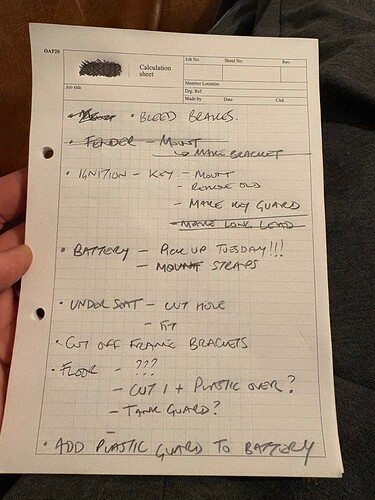 OAP20
Calculation
sheet
Job No. Sheet No. Rev.
Member Location
Job title
Drg. Ref.
Made by Date Chd.
• BLEED BRAKES.
• FENDER - MOUNT
↳ MAKE BRACKET
• IGNITION - KEY - MOUNT
- REMOVE OLD
- MAKE KEY GUARD
- MAKE LONG LEAD
• BATTERY - PICK UP TUESDAY!!!
- MOUNT STRAPS
• UNDER SEAT - CUT HOLE
- FIT
• CUT OFF FRAME BRACKETS
• FLOOR - ???
- CUT 1 + PLASTIC OVER?
- TANK GUARD?
-
• ADD PLASTIC GUARD TO BATTERY